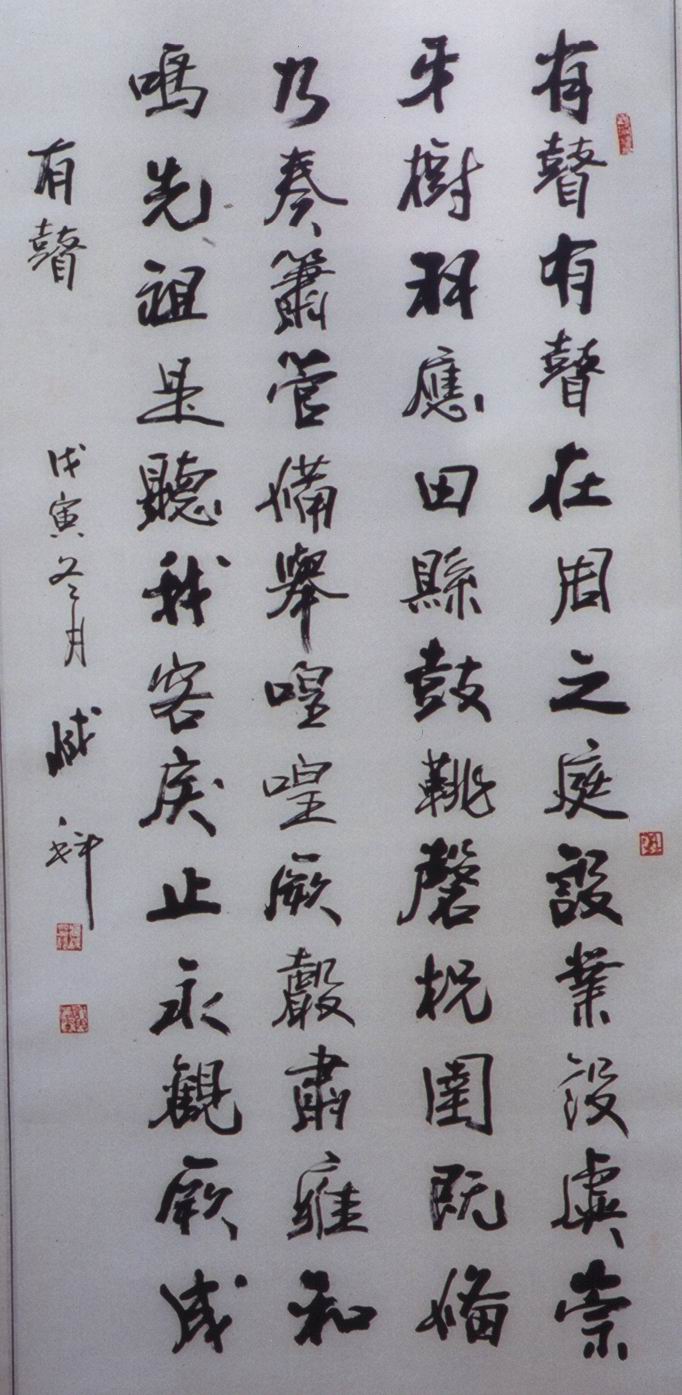 有瞽有瞽在周之庭設業設虡崇
牙樹羽應田縣鼓鞉磬柷圉既備
乃奏簫管備舉喤喤厥聲肅雍和
鳴先祖是聽我客戾止永觀厥成
有瞽 戊寅冬月